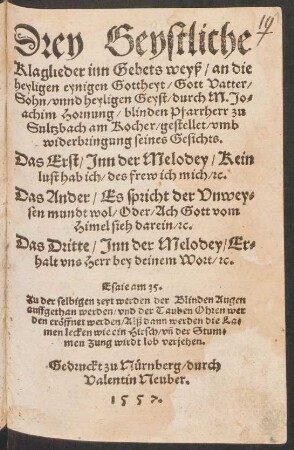 19
Drey Geystliche
Klaglieder inn Gebets weyß / an die
heyligen eynigen Gottheyt / Gott Vatter /
Sohn / vnnd heyligen Geyst / durch M. Jo-
achim Hornung / blinden Pfarrherr zu
Sultzbach am Kocher / gestellet / vmb
widerbringung seines Gesichts.
Das Erst / Inn der Melodey / Kein
lust hab ich / des frew ich mich / ꝛc.
Das Ander / Es spricht der Vnwey-
sen mundt wol / Oder / Ach Gott vom
Himel sieh darein / ꝛc.
Das Dritte / Inn der Melodey / Er-
halt vns Herr bey deinem Wort / ꝛc.
Esaie am 35.
Zu der selbigen zeyt werden der Blinden Augen
auffgethan werden / vnd der Tauben Ohren wer
den eröffnet werden / Alß dann werden die La-
men lecken wie ein Hirsch / vñ der Stum-
men Zung wirdt lob verjehen.
Gedruckt zu Nürnberg / durch
Valentin Neuber.
1557.